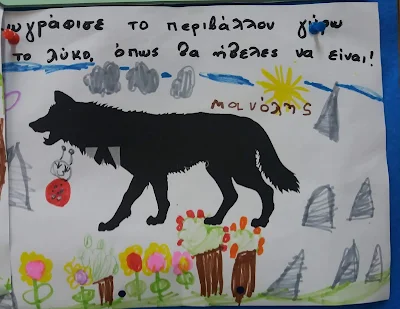 ωγράφισε το περιβάλλον γύρω
το λύκο, όπως θα ήθελες να είναι!
μανόλης